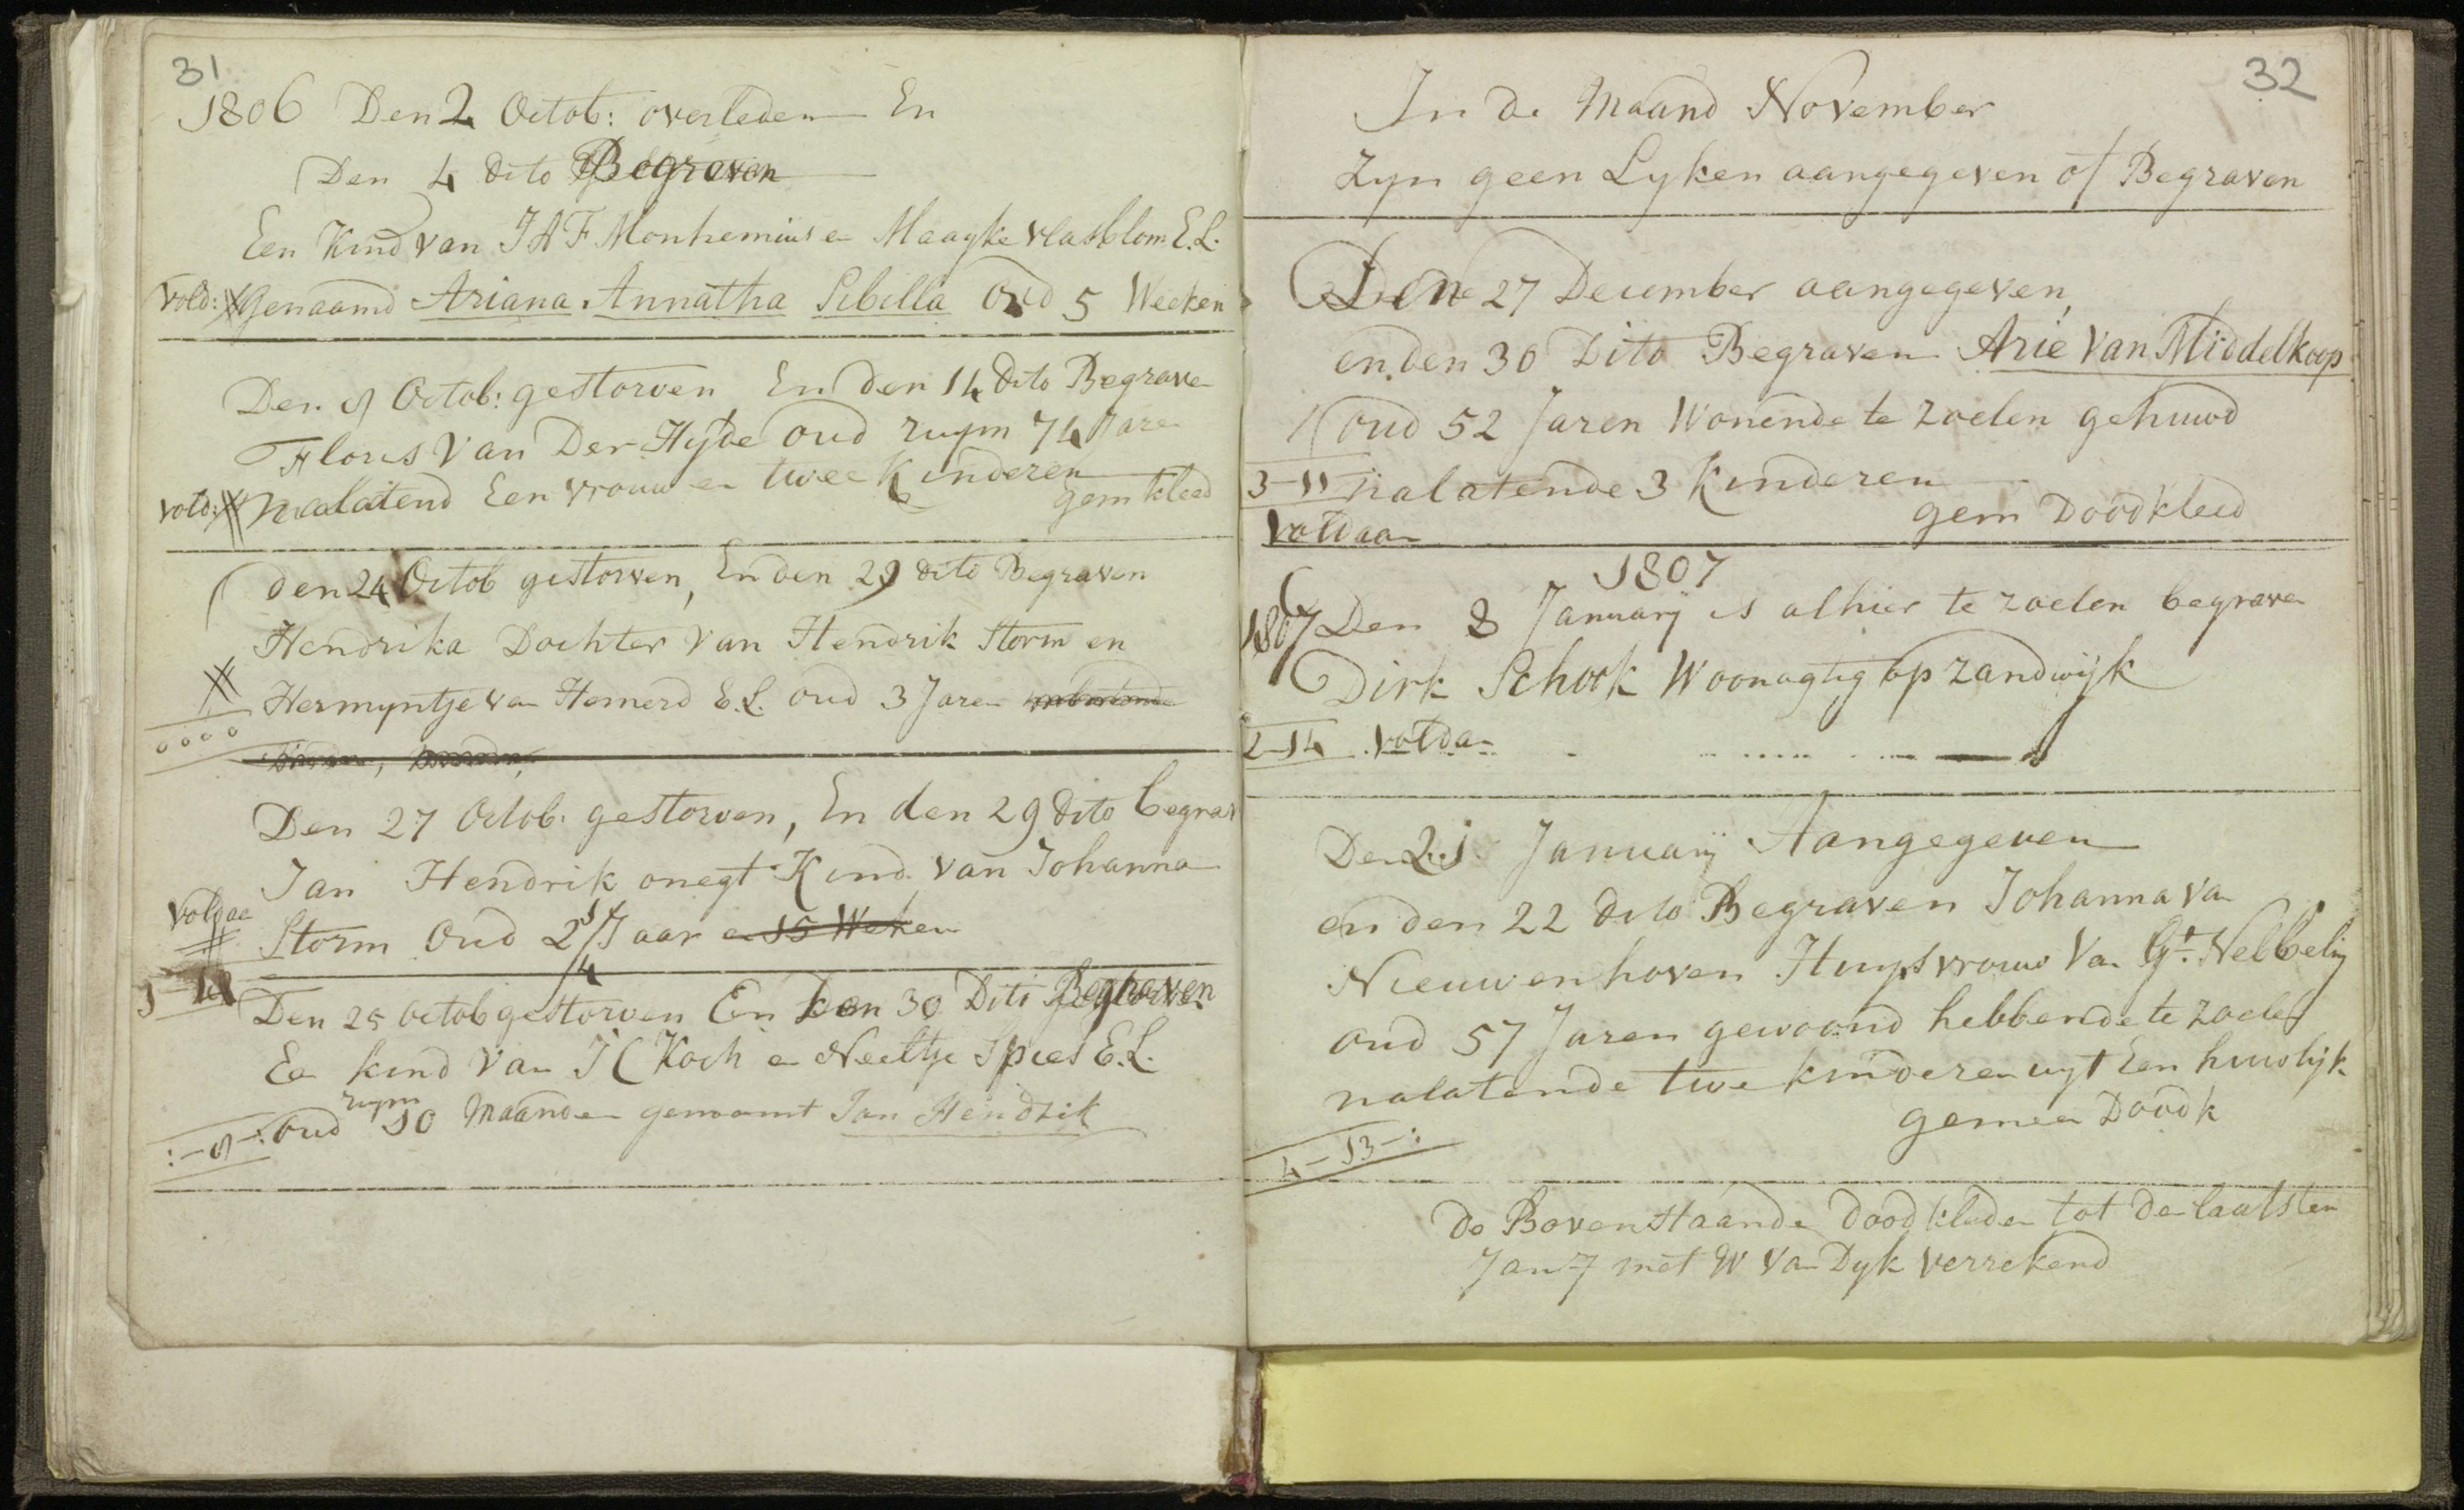 31
1806 Den 2 Octob: overleden En
Den 4 dito Begraven
Een Kind van J A F Monhemius en Maayke vlasblom E.L.
vold: genaamd Ariana Annatha Sibilla oud 5 Weeken
Den 9 Octob: gestorven En den 14 dito Begrave
Floris Van Der Hyde oud ruym 74 Jare
vold: nalatend Een vrouw en twee Kinderen
gem kleed
den 24 Octob gestorven, En den 29 dito Begraven
Hendrika Dochter van Hendrik Storm en
Hermyntje van Hemerd E.L. oud 3 Jaren
0000
Den 27 Octob. gestorven, En den 29 dito begrav
Jan Hendrik onegt Kind van Johanna
voldaa
Storm Oud 2 1/4 Jaar en 15 Weken
Den 25 octob gestorven En den 30 Dito Begraven
Ee kind van J C Koch en Neeltje Spies E.L.
ruym
:-9-: oud 10 Maanden genaamt Jan Hendrik
32
In de Maand November
Zyn geen Lyken aangegeven of Begraven
Den 27 December aangegeven,
en den 30 Dito Begraven Arie Van Middelkoop
oud 52 Jaren Wonende te Zoelen gehuwd
3-11 nalatende 3 Kinderen
gem Doodkleed
voldaan
1807
1807 Den 8 Januarij is alhier te Zoelen begrave
Dirk Schook Woonagtig op Zandwijk
2-14 volda
Den 21 Januarij Aangegeven
en den 22 dito Begraven Johanna va
Nieuwenhoven Huysvrouw Van Gt. Nelbelig
oud 57 Jaren gewoond hebbende te Zoelen
nalatende twe kinderen uyt Een huwlijk
gemeen Doodk
4-13-:
De Bovenstaande doodkleden tot de laatsten
Jan 7 met W van Dyk verrekend